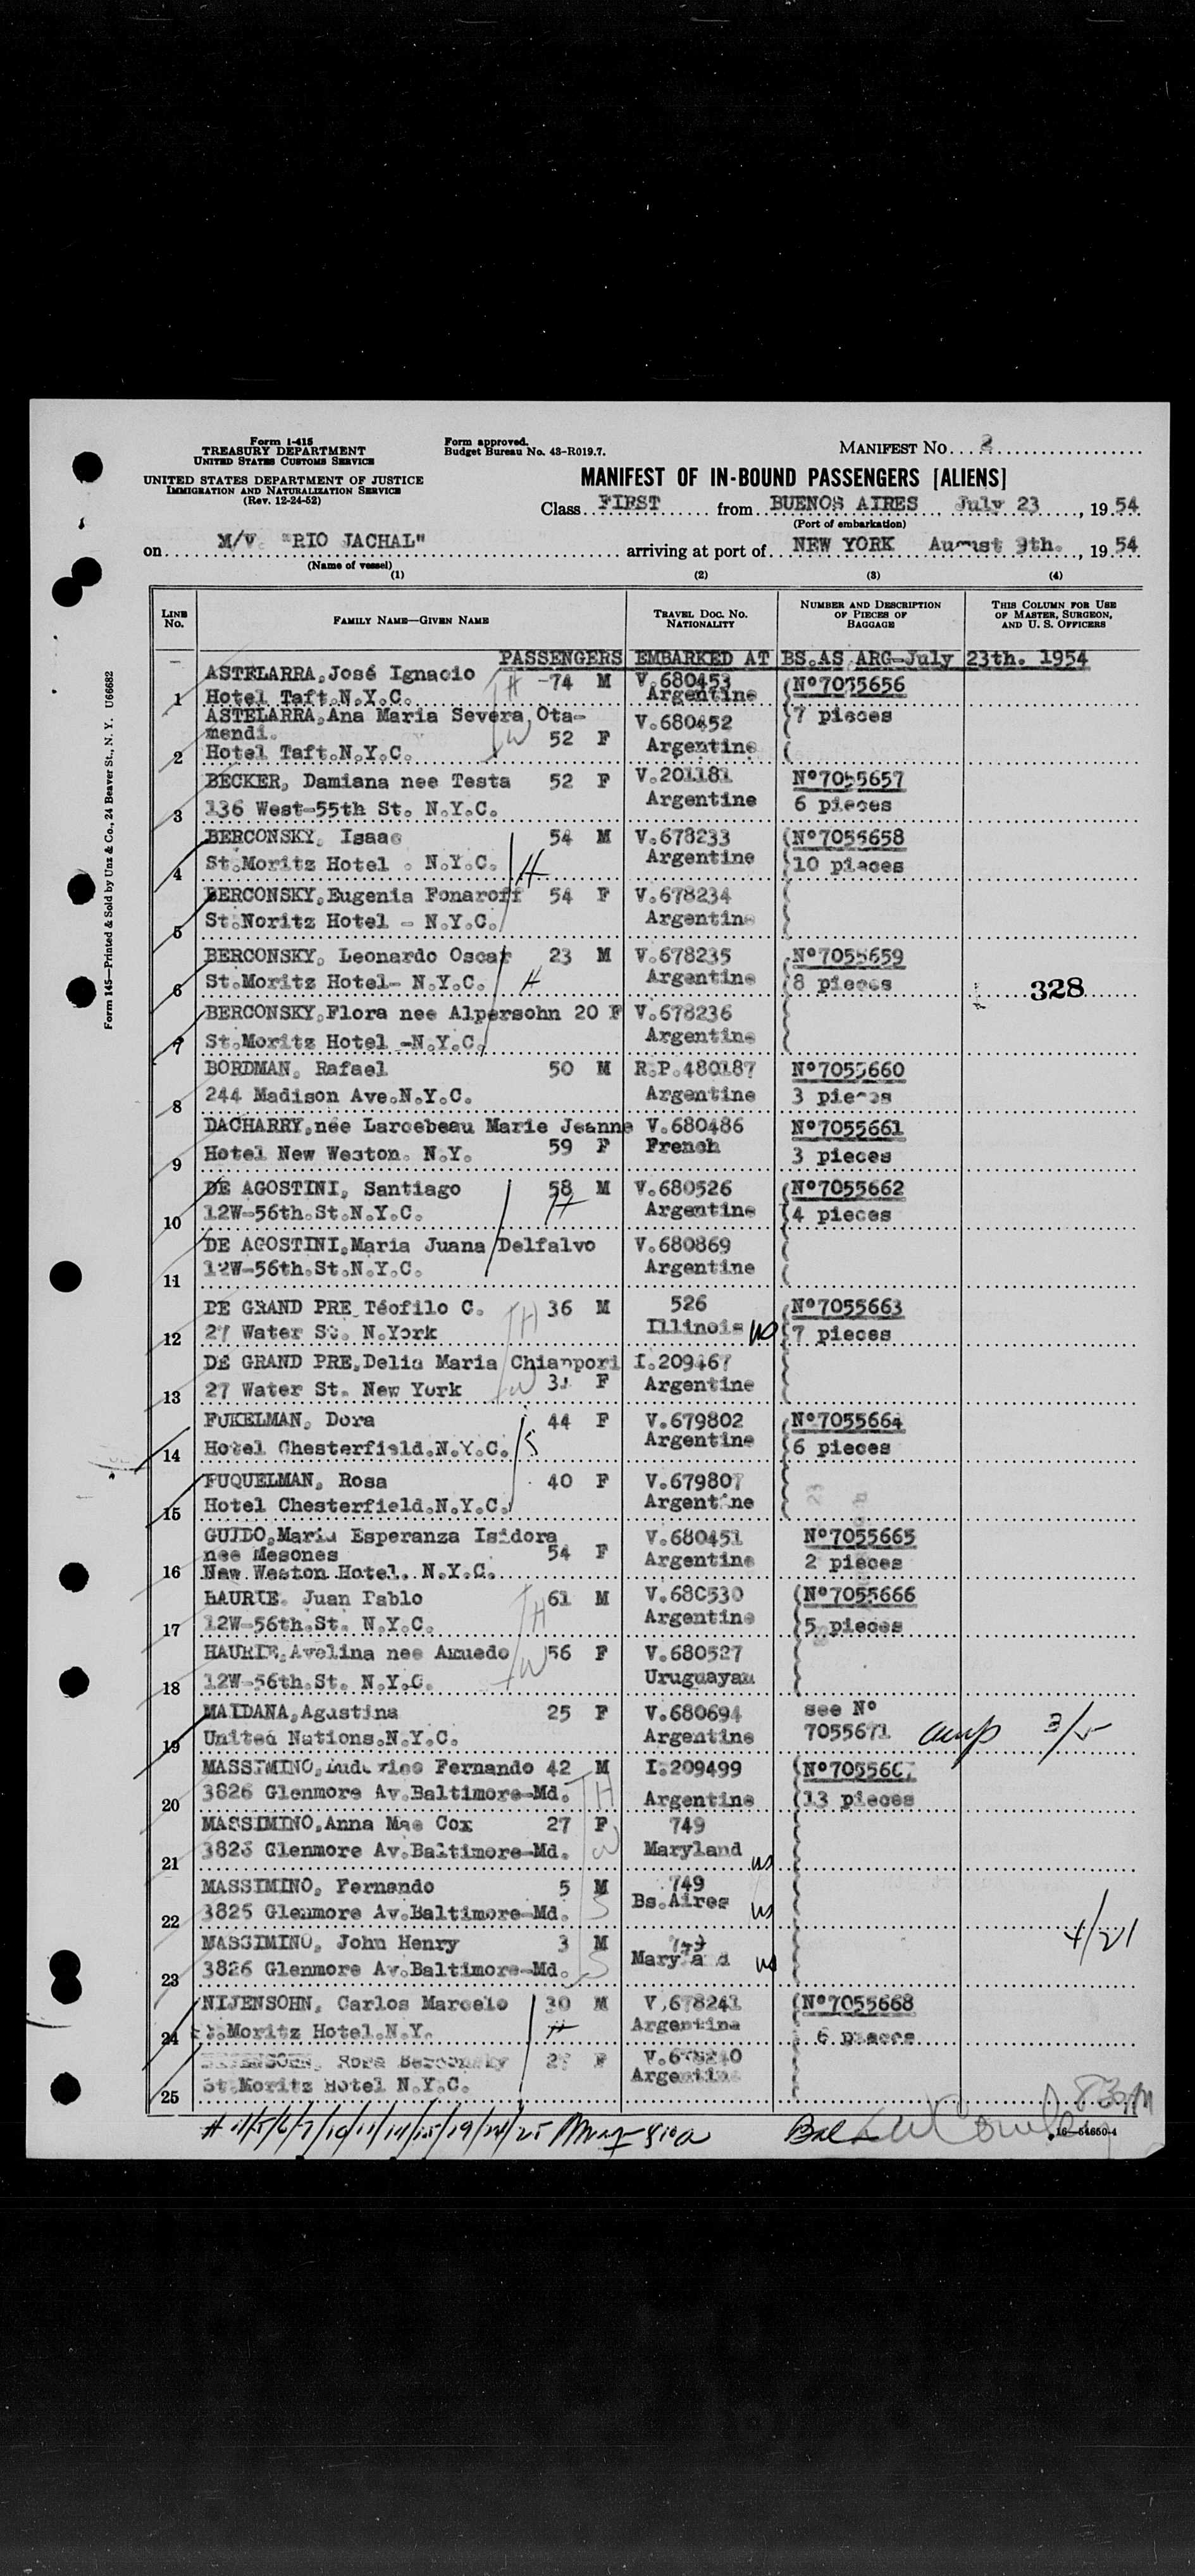 Form I-415
TREASURY DEPARTMENT
UNITED STATES CUSTOMS SERVICE
UNITED STATES DEPARTMENT OF JUSTICE
IMMIGRATION AND NATURALIZATION SERVICE
(Rev. 12-24-52)
Form approved.
Budget Bureau No. 43-R019.7.
MANIFEST NO. 2
MANIFEST OF IN-BOUND PASSENGERS [ALIENS]
Class FIRST from BUENOS AIRES July 23, 1954
(Port of embarkation)
on M/V "RIO JACHAL" arriving at port of NEW YORK August 9th., 1954
(Name of vessel)
(1) (2) (3) (4)
LINE NO. FAMILY NAME—GIVEN NAME TRAVEL DOC. NO. NATIONALITY NUMBER AND DESCRIPTION OF PIECES OF BAGGAGE THIS COLUMN FOR USE OF MASTER, SURGEON, AND U. S. OFFICERS
PASSENGERS EMBARKED AT BS.AS ARG-July 23th. 1954
ASTELARRA,José Ignacio 74 M V.680453 Nº7055656
1 Hotel Taft.N.Y.C. H Argentine
ASTELARRA,Ana Maria Severa Ota- 7 pieces
mendi. W 52 F V.680452
2 Hotel Taft.N.Y.C. Argentine
BECKER, Damiana nee Testa 52 F V.201181 Nº7055657
3 136 West-55th St. N.Y.C. Argentine 6 pieces
BERCONSKY, Isaac 54 M V.678233 Nº7055658
4 St.Moritz Hotel . N.Y.C. H Argentine 10 pieces
BERCONSKY,Eugenia Fonaroff 54 F V.678234
5 St.Noritz Hotel - N.Y.C. Argentine
BERCONSKY, Leonardo Oscar 23 M V.678235 Nº7055659
6 St.Moritz Hotel- N.Y.C. H Argentine 8 pieces 328
BERCONSKY,Flora nee Alpersohn 20 F V.678236
7 St.Moritz Hotel -N.Y.C. Argentine
BORDMAN, Rafael 50 M R.P.480187 Nº7055660
8 244 Madison Ave.N.Y.C. Argentine 3 pieces
DACHARRY,née Larcebeau Marie Jeanne V.680486 Nº7055661
9 Hotel New Weston. N.Y. 59 F French 3 pieces
DE AGOSTINI, Santiago 58 M V.680526 Nº7055662
10 12W-56th.St.N.Y.C. H Argentine 4 pieces
DE AGOSTINI,Maria Juana Delfalvo V.680869
11 12W-56th.St.N.Y.C. Argentine
DE GRAND PRE Téofilo C. 36 M 526 Nº7055663
12 27 Water St. N.York H Illinois US 7 pieces
DE GRAND PRE,Delia Maria Chiappori I.209467
13 27 Water St. New York W F Argentine
FUKELMAN, Dora 44 F V.679802 Nº7055664
14 Hotel Chesterfield.N.Y.C. S Argentine 6 pieces
FUQUELMAN, Rosa 40 F V.679807
15 Hotel Chesterfield.N.Y.C. Argentine
GUIDO,Maria Esperanza Isidora V.680451 Nº7055665
nee Mesones 54 F Argentine 2 pieces
16 New Weston Hotel. N.Y.C.
HAURIE. Juan Pablo 61 M V.680530 Nº7055666
17 12W-56th.St. N.Y.C. H Argentine 5 pieces
HAURIE,Avelina nee Amuedo 56 F V.680527
18 12W-56th.St. N.Y.C. W Uruguayan
MAIDANA,Agustina 25 F V.680694 see Nº
19 United Nations.N.Y.C. Argentine 7055671 3/5
MASSIMINO, Fernando 42 M I.209499
20 3826 Glenmore Av.Baltimore-Md. H Argentine 13 pieces
MASSIMINO,Anna Mae Cox 27 F 749
21 3826 Glenmore Av.Baltimore-Md. W Maryland US
MASSIMINO, Fernando 5 M 749
22 3826 Glenmore Av.Baltimore-Md. S Bs.Aires US
MASSIMINO, John Henry 3 M
23 3826 Glenmore Av.Baltimore-Md. S Maryland US 4/21
NIJENSOHN, Carlos Marcelo 30 M V.678241 Nº7055668
24 St.Moritz Hotel.N.Y. H Argentine 6 pieces
Rosa Berconsky F V.678240
25 St.Moritz Hotel N.Y.C. Argentine
# 4/5/6/7/10/11/14/15/19/24/25
16—54650-4
Form 145—Printed & Sold by Unz & Co., 24 Beaver St., N. Y. U66682